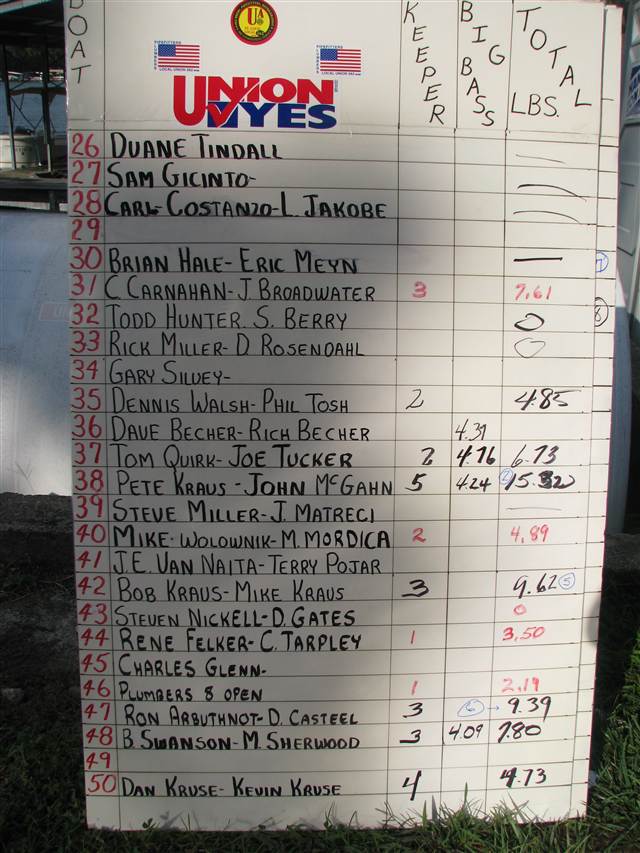 BOAT KEEPER BIG BASS TOTAL LBS.
UA
UNION YES
26 DUANE TINDALL —
27 SAM GICINTO- —
28 CARL-COSTANZO-L. JAKOBE —
29
30 BRIAN HALE-ERIC MEYN —
31 C CARNAHAN-J. BROADWATER 3 7.61
32 TODD HUNTER. S. BERRY 0 8
33 RICK MILLER-D. ROSENDAHL 0
34 GARY SILVEY-
35 DENNIS WALSH-PHIL TOSH 2 4.85
36 DAVE BECHER-RICH BECHER 4.39
37 TOM QUIRK-JOE TUCKER 2 4.76 6.73
38 PETE KRAUS - JOHN MCGAHN 5 4.24 15.32
39 STEVE MILLER-J. MATRECI —
40 MIKE-WOLOWNIK-M. MORDICA 2 4.89
41 J.E. VAN NAITA-TERRY POJAR
42 BOB KRAUS-MIKE KRAUS 3 9.62 5
43 STEVEN NICKELL-D. GATES 0
44 RENE FELKER-C. TARPLEY 1 3.50
45 CHARLES GLENN-
46 PLUMBERS 8 OPEN 1 2.19
47 RON ARBUTHNOT-D. CASTEEL 3 6 → 9.39
48 B. SWANSON-M. SHERWOOD 3 4.09 7.80
49
50 DAN KRUSE-KEVIN KRUSE 4 4.73